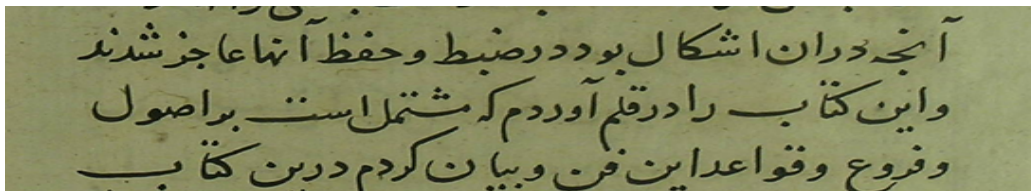 آنجه دران اشکال بود در ضبط و حفظ آنها عاجز شدند
و این کتاب را در قلم آوردم که مشتمل است بر اصول
و فروع و قواعد این فن و بیان کردم درین کتاب